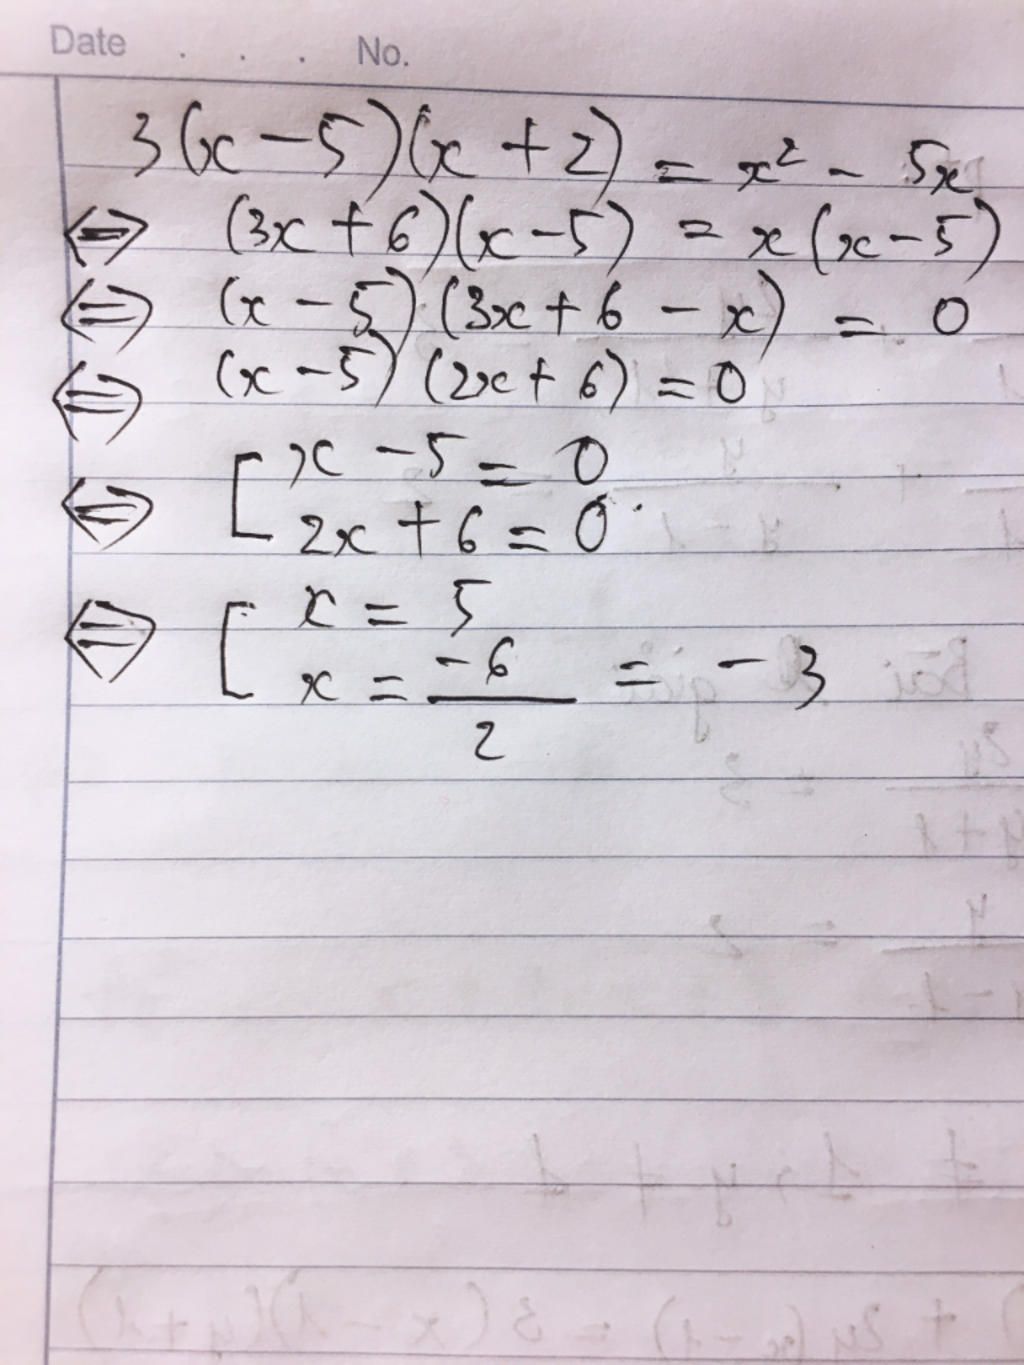 Date . . . No.
3(x - 5)(x + 2) = x² - 5x
⇔ (3x + 6)(x - 5) = x(x - 5)
⇔ (x - 5)(3x + 6 - x) = 0
⇔ (x - 5)(2x + 6) = 0
⇔ [ x - 5 = 0
2x + 6 = 0
⇔ [ x = 5
x = -6/2 = -3